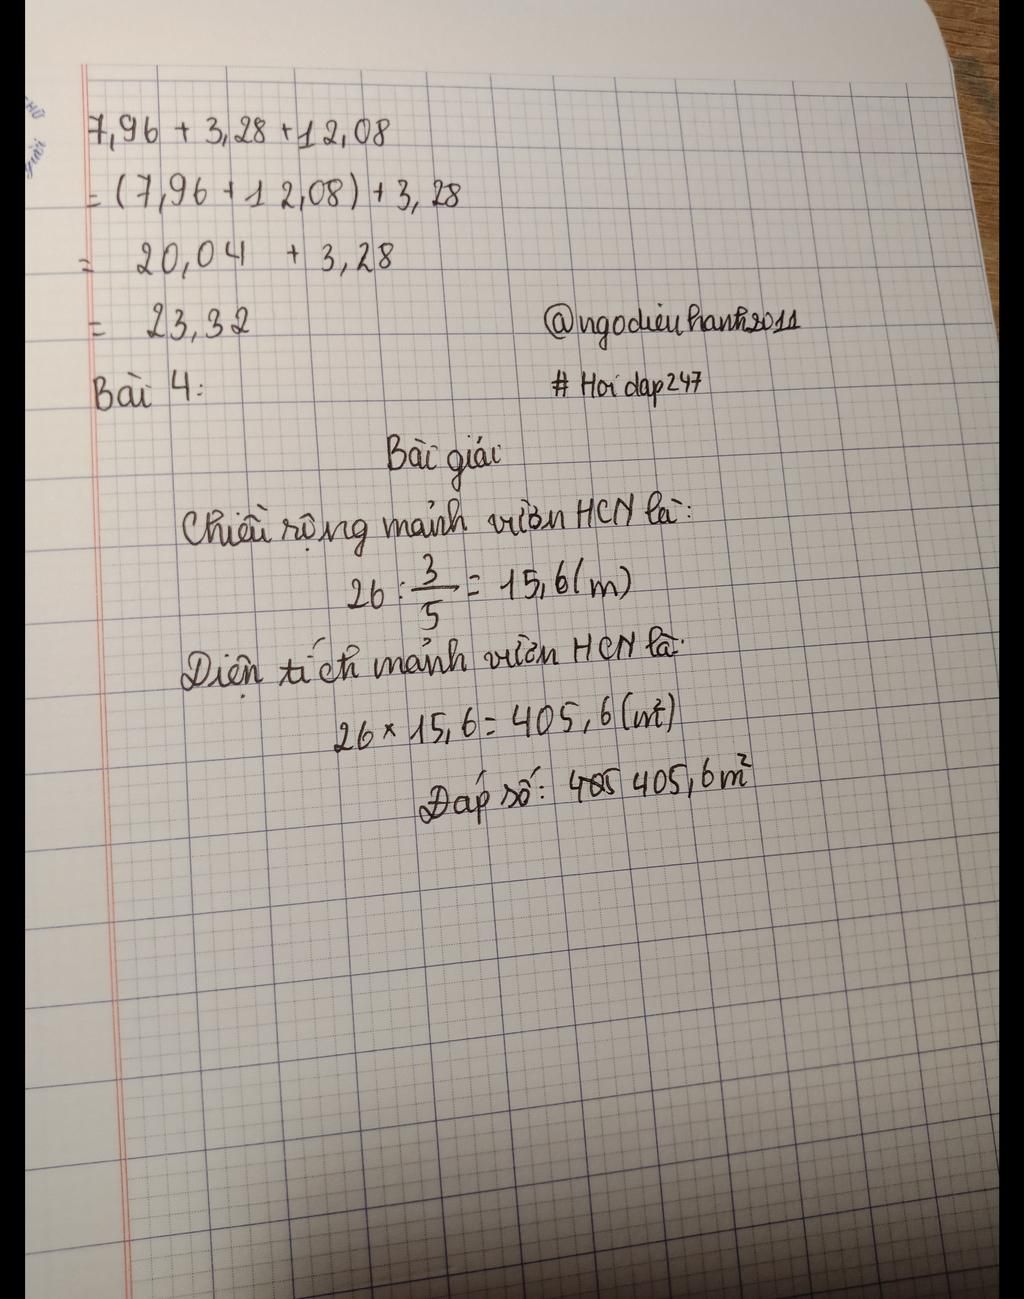 7,96 + 3,28 + 12,08
= (7,96 + 12,08) + 3,28
= 20,04 + 3,28
= 23,32
@ngodieuhanh2011
Bài 4:
# Hoidap247
Bài giải
Chiều rộng mảnh vườn HCN là:
26 : 3/5 = 15,6 (m)
Diện tích mảnh vườn HCN là:
26 × 15,6 = 405,6 (m²)
Đáp số: 405 405,6 m²